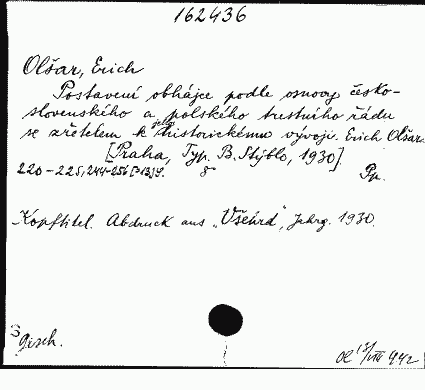 162436
Olšar, Erich
Postavení obhájce podle osnovy česko-
slovenského a polského trestního řádu
se zřetelem k jeho historickému vývoji. Erich Olšar.
[Praha, Typ. B. Stýblo, 1930]
220-225, 244-256 S. 8 Pp.
Kopftitel. Abdruck aus „Všehrd", Jahrg. 1930.
Gesch.
17/VII 942